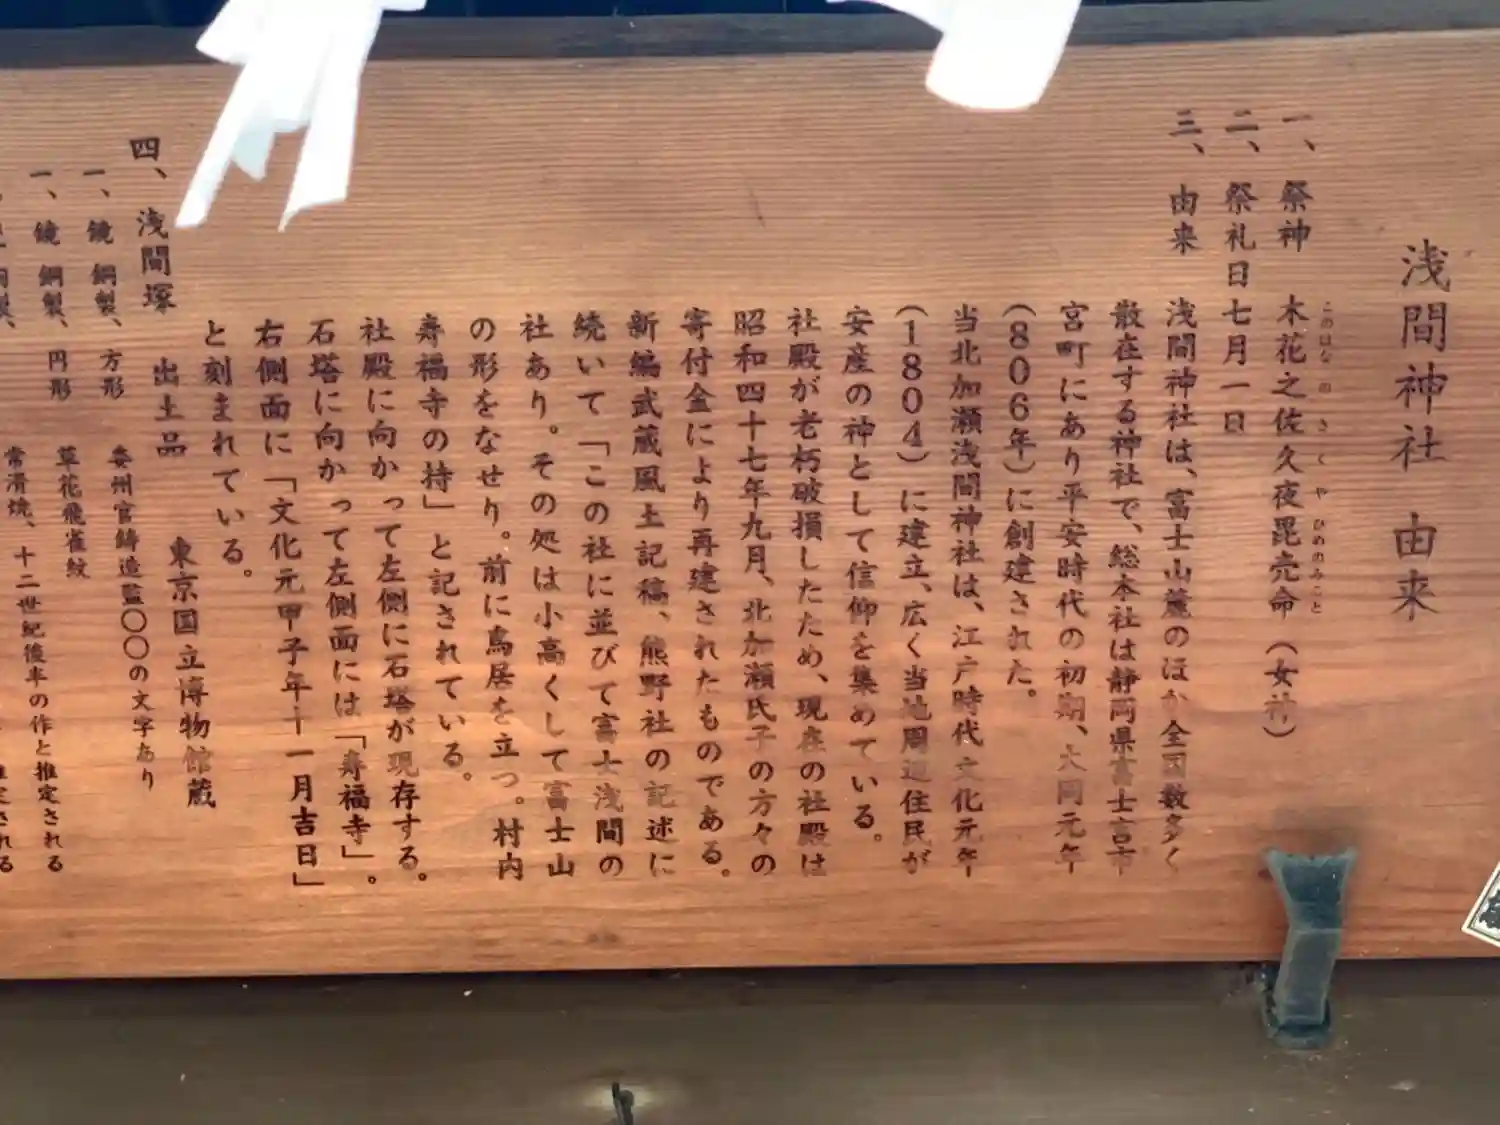 浅間神社 由来
一、祭神 木花之佐久夜毘売命（女神）
このはな の さ く や ひめのみこと
二、祭礼日 七月一日
三、由来 浅間神社は、富士山麓のほか全国数多く
散在する神社で、総本社は静岡県富士宮市
宮町にあり平安時代の初期、大同元年
（806年）に創建された。
当北加瀬浅間神社は、江戸時代文化元年
（1804）に建立、広く当地周辺住民が
安産の神として信仰を集めている。
社殿が老朽破損したため、現在の社殿は
昭和四十七年九月、北加瀬氏子の方々の
寄付金により再建されたものである。
新編武蔵風土記稿、熊野社の記述に
続いて「この社に並びて富士浅間の
社あり。その処は小高くして富士山
の形をなせり。前に鳥居を立つ。村内
寿福寺の持」と記されている。
社殿に向かって左側に石塔が現存する。
石塔に向かって左側面には「寿福寺」。
右側面に「文化元甲子年十一月吉日」
と刻まれている。
四、浅間塚 出土品 東京国立博物館蔵
一、鏡 銅製、方形 委州官鋳造監〇〇の文字あり
一、鏡 銅製、円形 草花飛雀紋
常滑焼、十二世紀後半の作と推定される